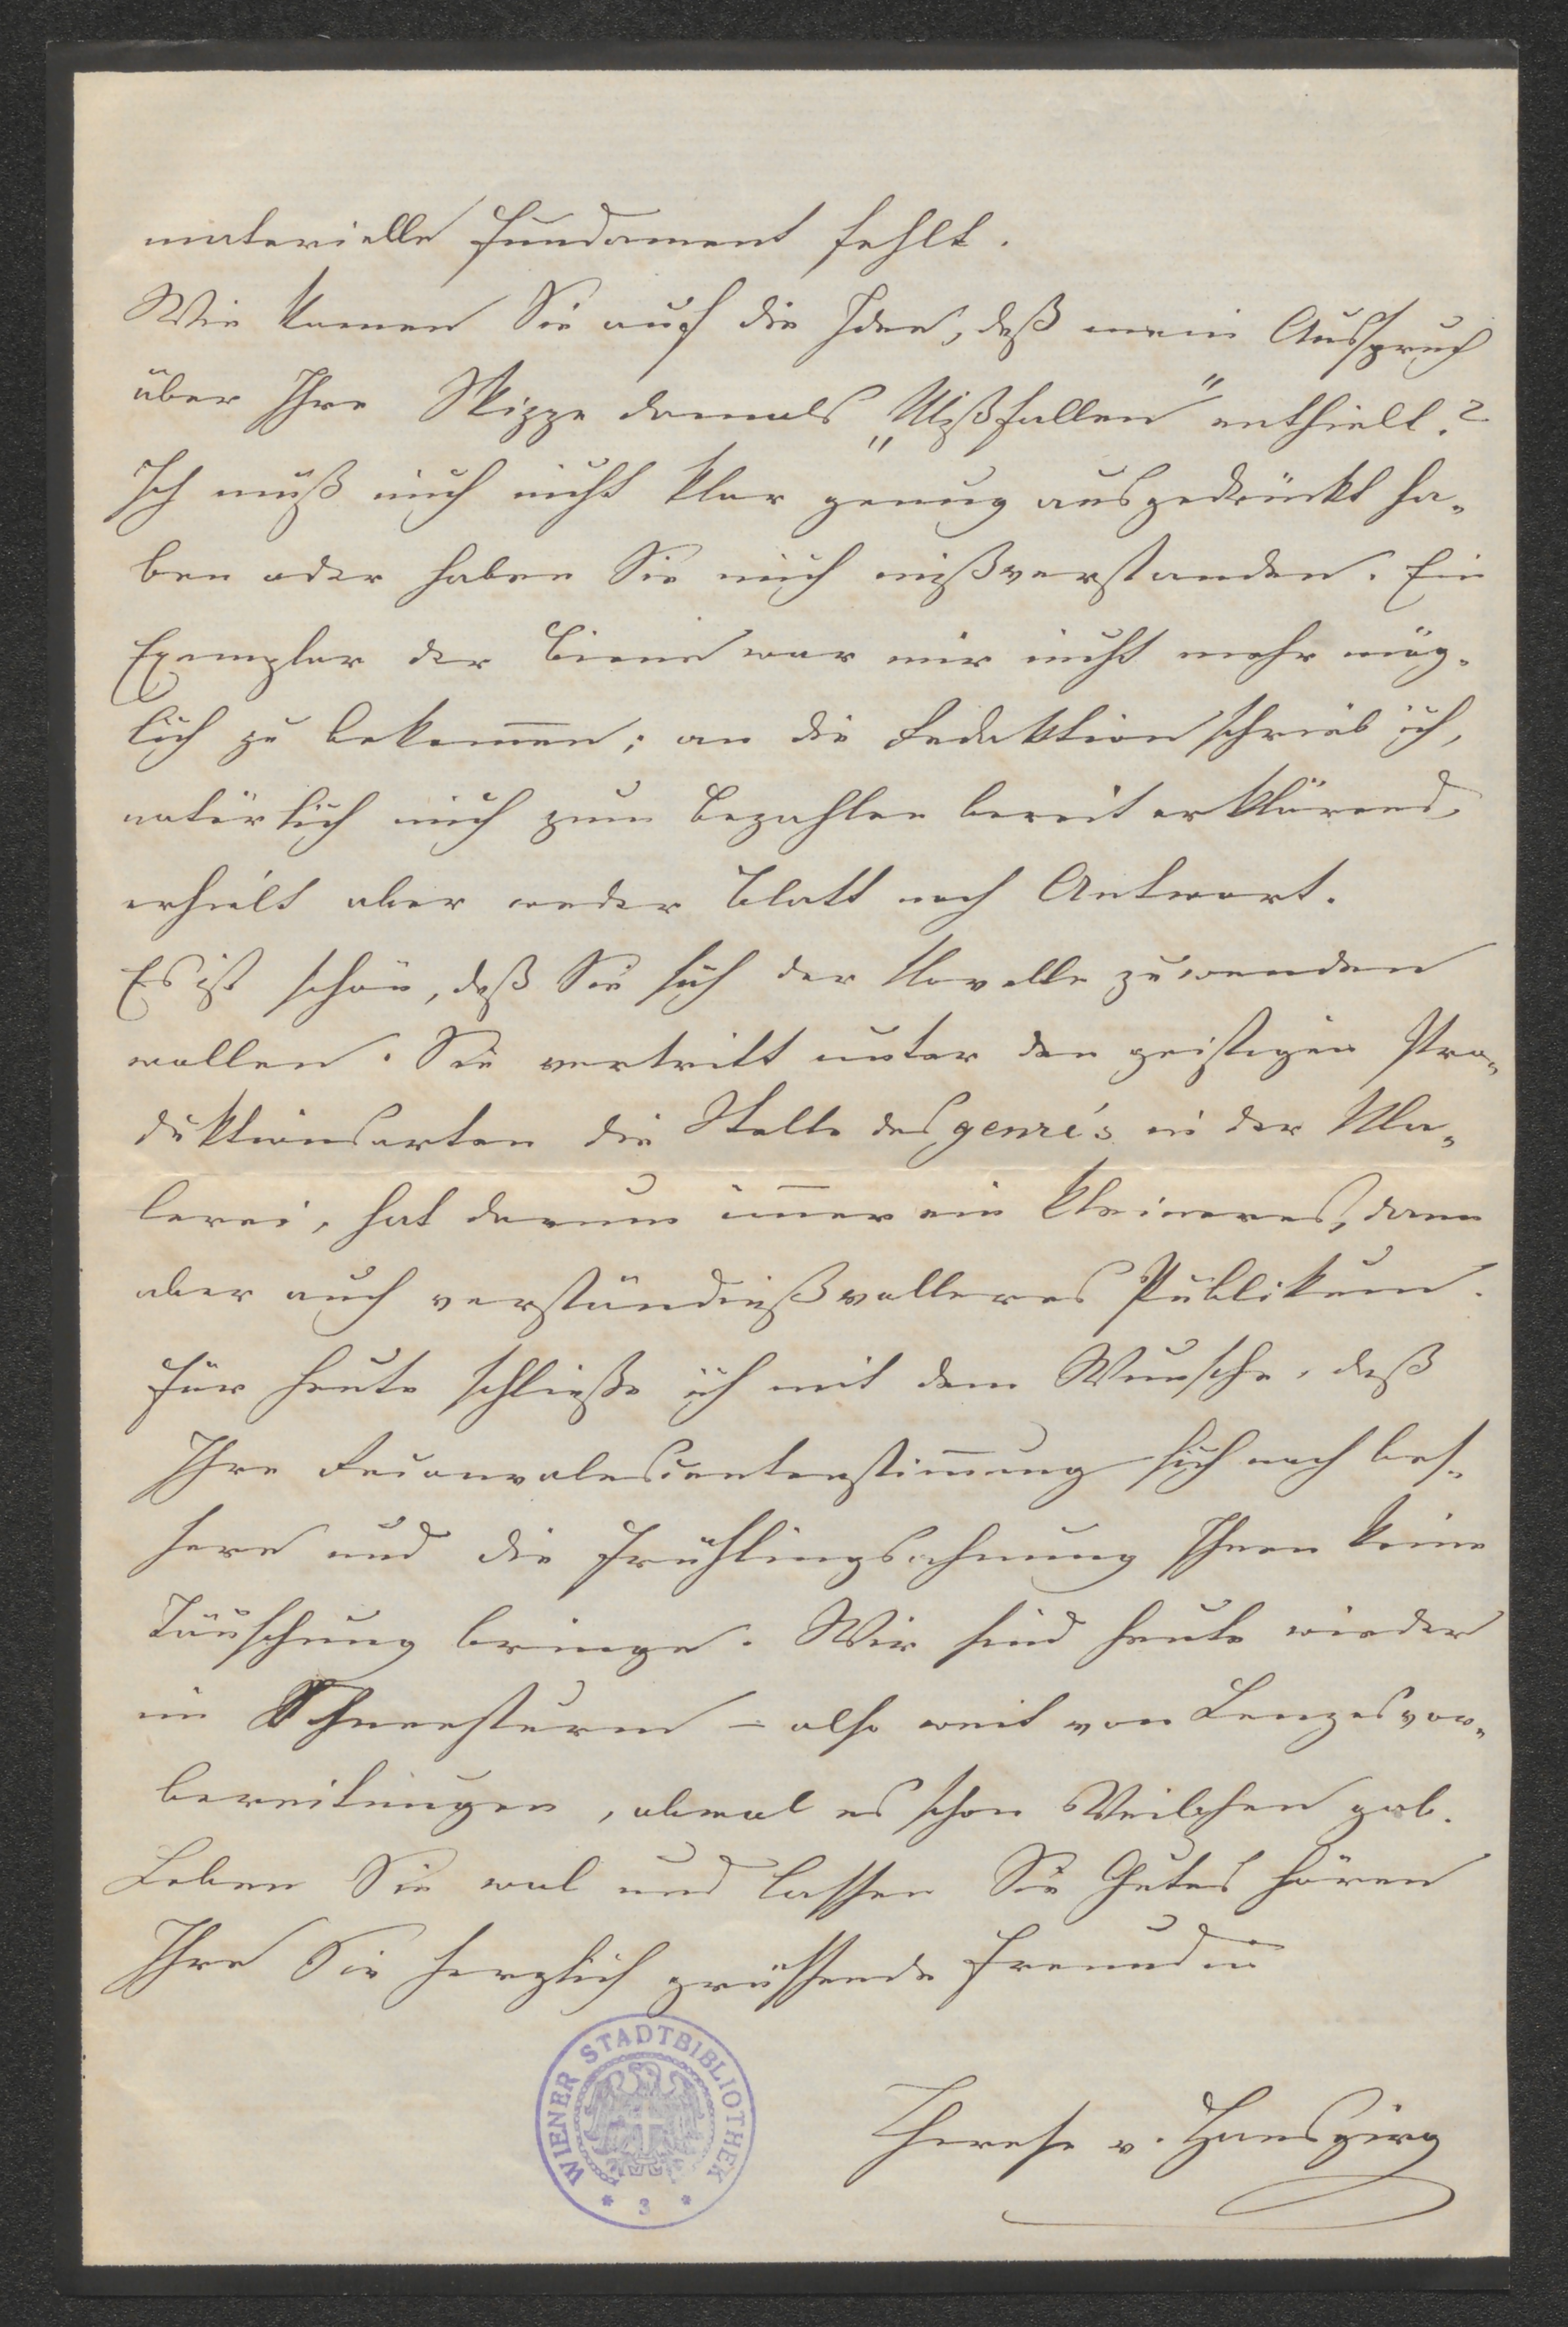 materielle Fundament fehlt.
Wie kamen Sie auf die Idee, daß mein Ausspruch
über Ihre Skizze damals „Mißfallen" enthielt?
Ich muß mich nicht klar genug ausgedrückt ha-
ben oder haben Sie mich mißverstanden. Ein
Exemplar der Biene war mir nicht mehr mög-
lich zu bekommen; an die Redaktion schrieb ich,
natürlich mich zum Bezahlen bereit erklärend,
erhielt aber weder Blatt noch Antwort.
Es ist schön, daß Sie sich der Novelle zuwenden
wollen. Sie vertritt unter den geistigen Pro-
duktionsarten die Stelle des genre's in der Ma-
lerei, hat darum immer ein kleineres, dann
aber auch verständnißvolleres Publikum.
Für heute schließe ich mit dem Wunsche, daß
Ihre Reconvalescentenstimmung sich noch bes-
sere und die Frühlingsahnung Ihnen keine
Täuschung bringe. Wir sind heute wieder
im Schneesturm – also weit von Lenzesvor-
bereitungen, obwol es schon Veilchen gab.
Leben Sie wol und lassen Sie Gutes hören
Ihre Sie herzlich grüssende Freundin
Therese v. Hansgirg
WIENER STADTBIBLIOTHEK
* 3 *